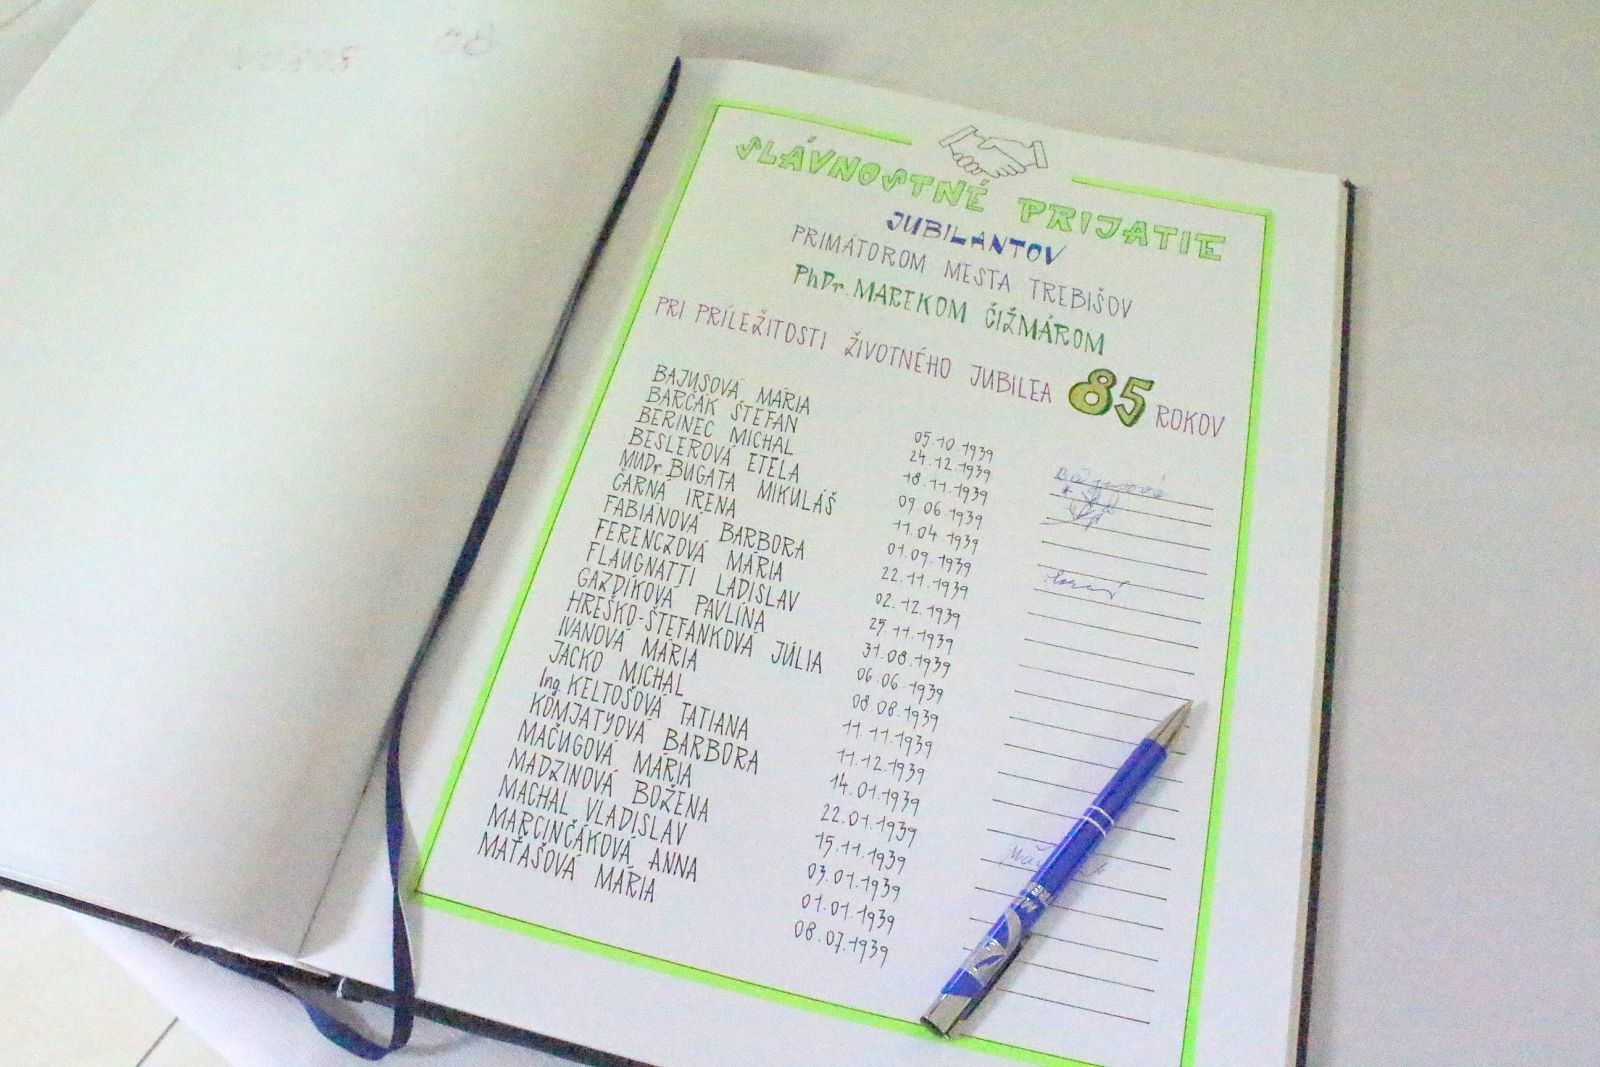 SLÁVNOSTNÉ PRIJATIE
JUBILANTOV
PRIMÁTOROM MESTA TREBIŠOV
PhDr. MAREKOM ČIŽMÁROM
PRI PRÍLEŽITOSTI ŽIVOTNÉHO JUBILEA 85 ROKOV
BAJUSOVÁ MÁRIA 05.10.1939 Bajusová
BARČÁK ŠTEFAN 24.12.1939
BERINEC MICHAL 18.11.1939
BESLEROVÁ ETELA 09.06.1939
MUDr. BUGATA MIKULÁŠ 11.04.1939
ČARNÁ IRENA 01.09.1939
FABIANOVÁ BARBORA 22.11.1939
FERENCZOVÁ MÁRIA 02.12.1939
FLAUGNATTI LADISLAV 25.11.1939
GAZDÍKOVÁ PAVLÍNA 31.08.1939
HREŠKO-ŠTEFANKOVÁ JÚLIA 06.06.1939
IVANOVÁ MÁRIA 08.08.1939
JACKO MICHAL 11.11.1939
Ing. KELTOŠOVÁ TATIANA 11.12.1939
KOMJATYOVÁ BARBORA 14.01.1939
MAČUGOVÁ MÁRIA 22.01.1939
MADZINOVÁ BOŽENA 15.11.1939
MACHAL VLADISLAV 03.01.1939
MARCINČÁKOVÁ ANNA 01.01.1939
MAŤAŠOVÁ MÁRIA 08.07.1939